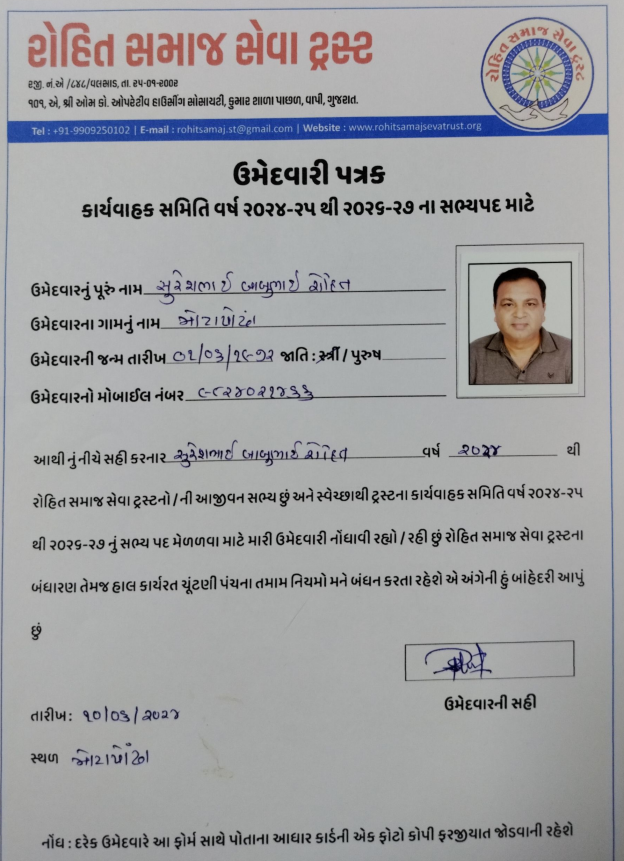 રોહિત સમાજ સેવા ટ્રસ્ટ
રજી. નં.એ /૮૪૮/વલસાડ, તા. ૨૫-૦૧-૨૦૦૨
૧૦૧, એ, શ્રી ઓમ કો. ઓપરેટીવ હાઉસીંગ સોસાયટી, કુમાર શાળા પાછળ, વાપી, ગુજરાત.
રોહિત સમાજ સેવા ટ્રસ્ટ
Tel : +91-9909250102 | E-mail : rohitsamaj.st@gmail.com | Website : www.rohitsamajsevatrust.org
ઉમેદવારી પત્રક
કાર્યવાહક સમિતિ વર્ષ ૨૦૨૪-૨૫ થી ૨૦૨૬-૨૭ ના સભ્યપદ માટે
ઉમેદવારનું પૂરું નામ સુરેશભાઈ બાબુભાઈ રોહિત
ઉમેદવારના ગામનું નામ મોટાપોંઢા
ઉમેદવારની જન્મ તારીખ ૦૧/૦૩/૧૯૭૨ જાતિ : સ્ત્રી / પુરુષ
ઉમેદવારનો મોબાઈલ નંબર
આથી નું નીચે સહી કરનાર સુરેશભાઈ બાબુભાઈ રોહિત વર્ષ ૨૦૨૪ થી
રોહિત સમાજ સેવા ટ્રસ્ટનો / ની આજીવન સભ્ય છું અને સ્વેચ્છાથી ટ્રસ્ટના કાર્યવાહક સમિતિ વર્ષ ૨૦૨૪-૨૫
થી ૨૦૨૬-૨૭ નું સભ્ય પદ મેળળવા માટે મારી ઉમેદવારી નોંધાવી રહ્યો / રહી છું રોહિત સમાજ સેવા ટ્રસ્ટના
બંધારણ તેમજ હાલ કાર્યરત ચૂંટણી પંચના તમામ નિયમો મને બંધન કરતા રહેશે એ અંગેની હું બાંહેદરી આપું
છું
ઉમેદવારની સહી
તારીખ: ૧૦/૦૩/૨૦૨૪
સ્થળ મોટાપોંઢા
નોંધ : દરેક ઉમેદવારે આ ફોર્મ સાથે પોતાના આધાર કાર્ડની એક ફોટો કોપી ફરજીયાત જોડવાની રહેશે